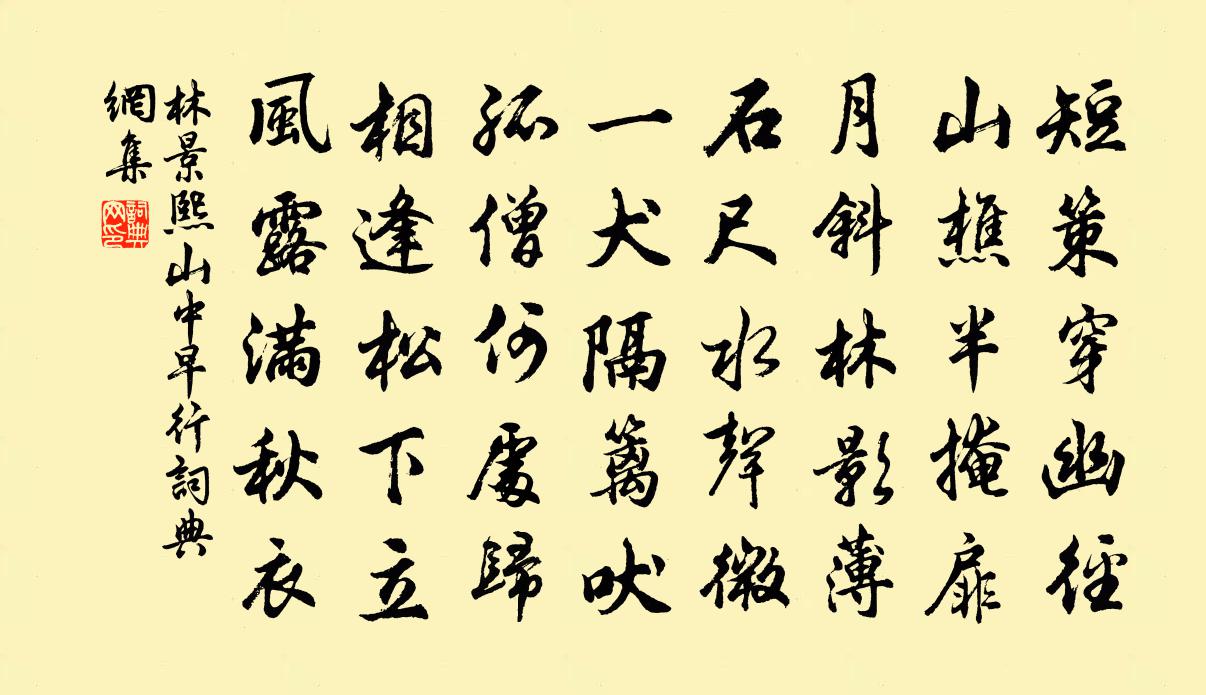 短策穿幽徑
山樵半掩扉
月斜林影薄
石尺水聲微
一犬隔籬吠
孤僧何處歸
相逢松下立
風露滿秋衣
林景熙山中早行詞典
網集
詞典網印